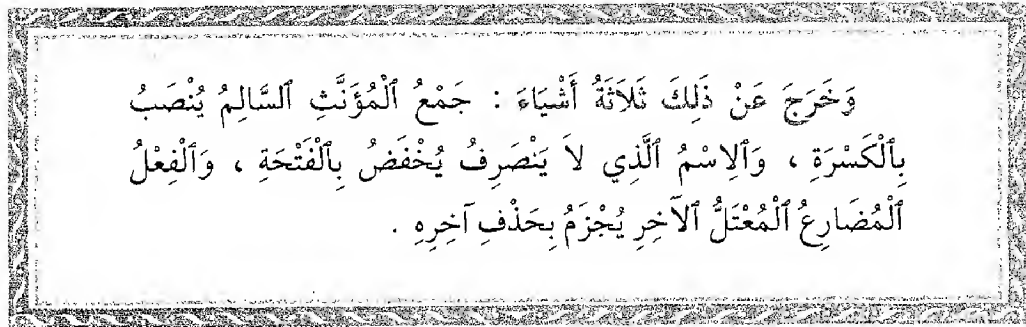 وَخَرَجَ عَنْ ذَلِكَ ثَلَاثَةُ أَشْيَاءَ : جَمْعُ ٱلْمُؤَنَّثِ ٱلسَّالِمُ يُنْصَبُ
بِٱلْكَسْرَةِ ، وَٱلِاسْمُ ٱلَّذِي لاَ يَنْصَرِفُ يُخْفَضُ بِٱلْفَتْحَةِ ، وَٱلْفِعْلُ
ٱلْمُضَارِعُ ٱلْمُعْتَلُّ ٱلآخِرِ يُجْزَمُ بِحَذْفِ آخِرِهِ .